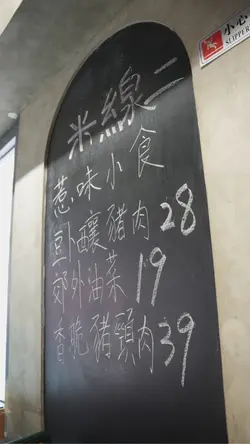 米線二
惹味小食
豆卜釀豬肉 28
郊外油菜 19
香脆豬頸肉 39
小心
SLIPPER